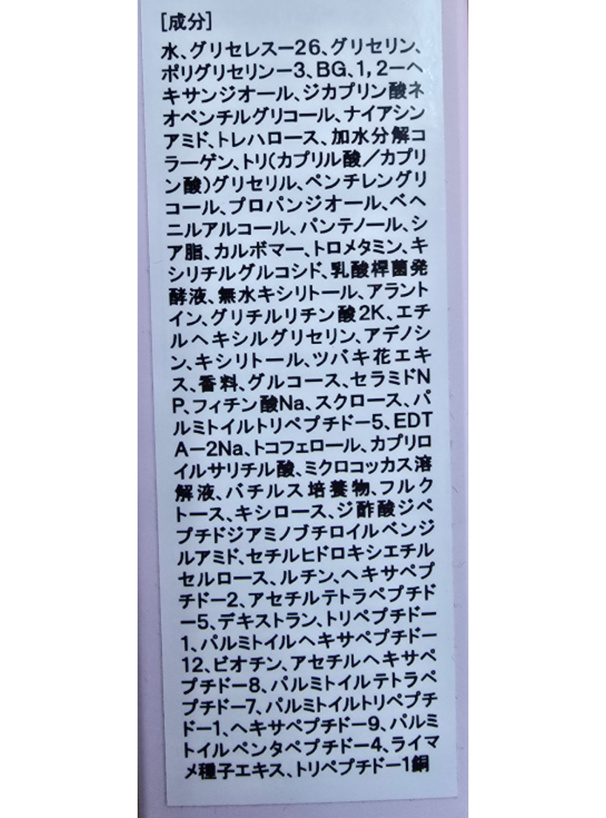 [成分]
水、グリセレス－26、グリセリン、
ポリグリセリン－3、BG、1,2－ヘ
キサンジオール、ジカプリン酸ネ
オペンチルグリコール、ナイアシン
アミド、トレハロース、加水分解コ
ラーゲン、トリ(カプリル酸／カプリ
ン酸)グリセリル、ペンチレングリ
コール、プロパンジオール、ベヘ
ニルアルコール、パンテノール、シ
ア脂、カルボマー、トロメタミン、キ
シリチルグルコシド、乳酸桿菌発
酵液、無水キシリトール、アラント
イン、グリチルリチン酸2K、エチ
ルヘキシルグリセリン、アデノシ
ン、キシリトール、ツバキ花エキ
ス、香料、グルコース、セラミドN
P、フィチン酸Na、スクロース、パ
ルミトイルトリペプチド－5、EDT
A－2Na、トコフェロール、カプリロ
イルサリチル酸、ミクロコッカス溶
解液、バチルス培養物、フルク
トース、キシロース、ジ酢酸ジペ
プチドジアミノブチロイルベンジ
ルアミド、セチルヒドロキシエチル
セルロース、ルチン、ヘキサペプ
チド－2、アセチルテトラペプチド
－5、デキストラン、トリペプチド－
1、パルミトイルヘキサペプチド－
12、ビオチン、アセチルヘキサペ
プチド－8、パルミトイルテトラペ
プチド－7、パルミトイルトリペプチ
ド－1、ヘキサペプチド－9、パルミ
トイルペンタペプチド－4、ライマ
メ種子エキス、トリペプチド－1銅